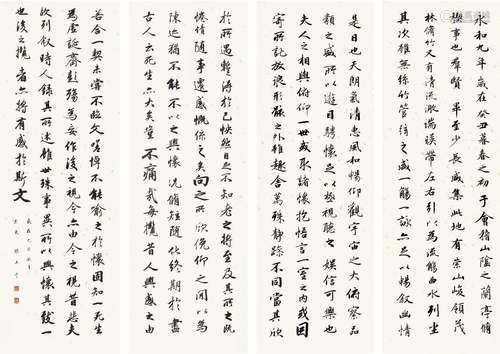 永和九年歲在癸丑暮春之初會稽山陰之蘭亭脩
禊事也群賢畢至少長咸集此地有崇山峻領茂
林脩竹又有清流激湍映帶左右引以為流觴曲水列坐
其次雖無絲竹管弦之盛一觴一詠亦足以暢叙幽情
是日也天朗氣清惠風和暢仰觀宇宙之大俯察品
類之盛所以遊目騁懷足以極視聽之娛信可樂也
夫人之相與俯仰一世或取諸懷抱悟言一室之内或因
寄所託放浪形骸之外雖趣舍萬殊靜躁不同當其欣
於所遇暫得於己怏然自足不知老之將至及其所之既
惓情隨事遷感慨係之矣向之所欣俛仰之閒以為
陳迹猶不能不以之興懷況脩短隨化終期於盡
古人云死生亦大矣豈不痛哉每攬昔人興感之由
若合一契未嘗不臨文嗟悼不能喻之於懷固知一死生
為虛誕齊彭殤為妄作後之視今亦由今之視昔悲夫
故列叙時人錄其所述雖世殊事異所以興懷其致一
也後之攬者亦將有感於斯文